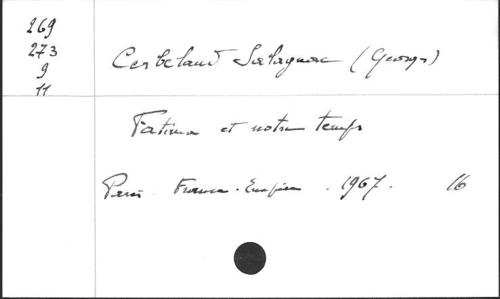 269
273
9
11
Cerbelaud Salagnac (Georges)
Fatima et notre temps
Paris. France-Empire. 1967. 16